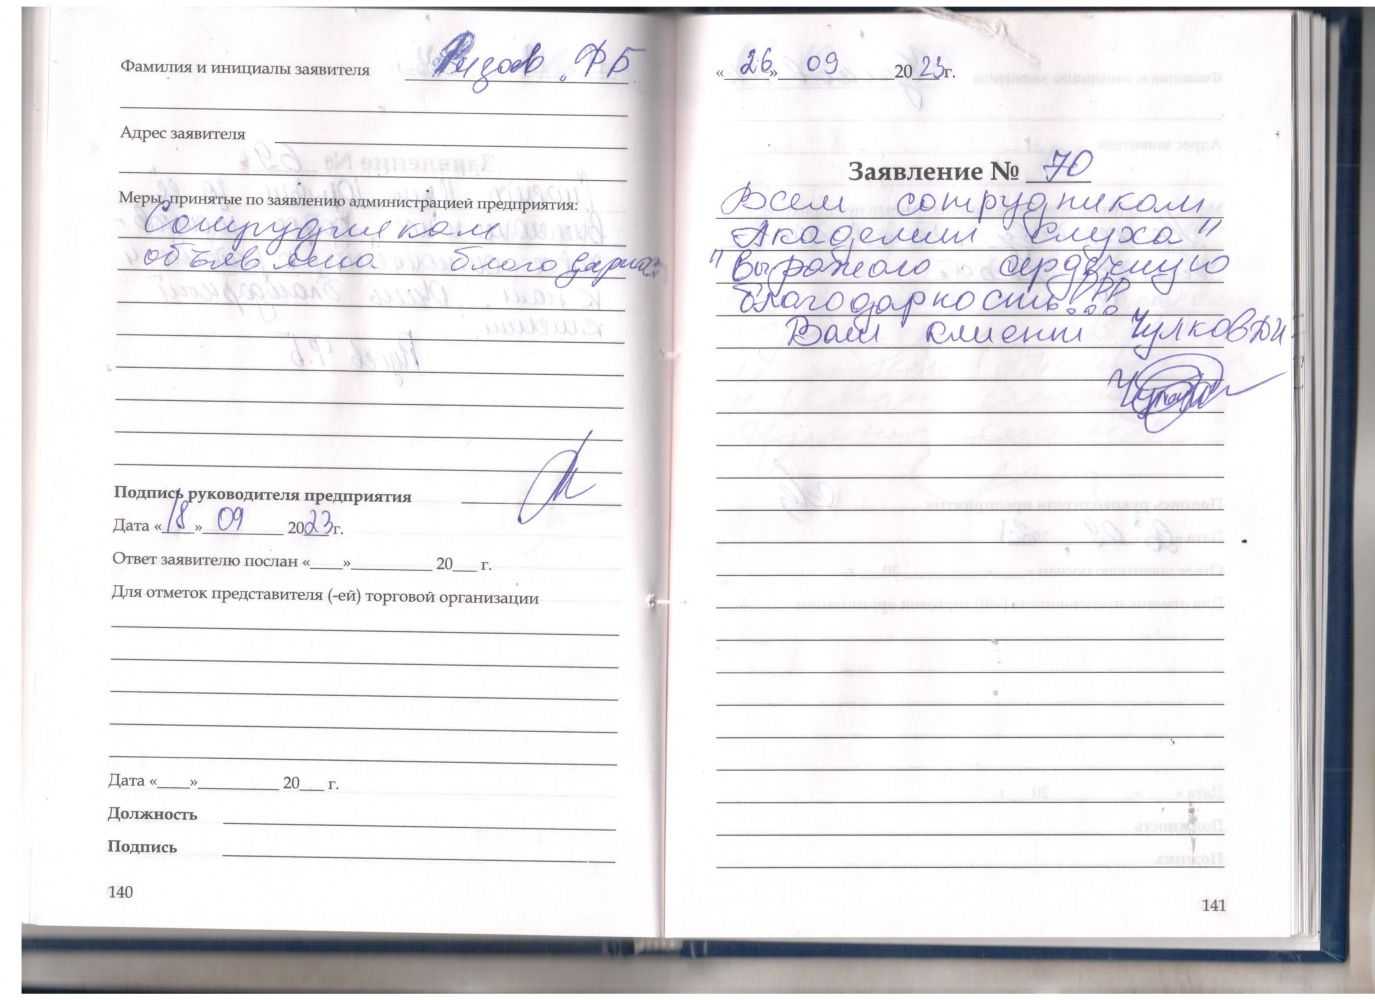 Фамилия и инициалы заявителя Ризов. Ф Б
Адрес заявителя
Меры, принятые по заявлению администрацией предприятия:
Сотрудникам
объявлена благодарность
Подпись руководителя предприятия
Дата «18» 09 2023г.
Ответ заявителю послан «____»__________ 20___ г.
Для отметок представителя (-ей) торговой организации
Дата «____»__________ 20___ г.
Должность
Подпись
140
«26» 09 2023г.
Заявление № 70
Всем сотрудникам
Академии слуха"
"Выражаю сердечную
благодарность!!!
Ваш клиент Чулков ВИ
141